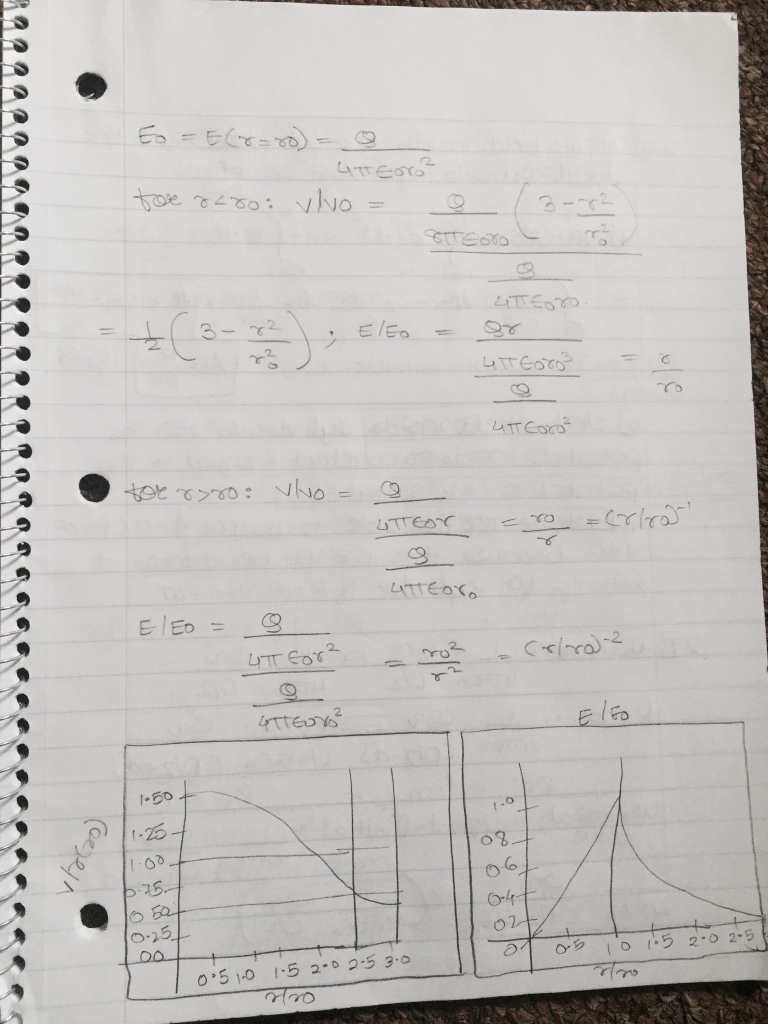 E0 = E(r=r0) = Q
4πϵ0r0²
for r<r0: V/V0 = Q ( 3 - r²
8πϵ0r0 r0² )
Q
4πϵ0r0.
= 1/2 ( 3 - r²/r0² ) ; E/E0 = Qr
4πϵ0r0³ = r/r0
Q
4πϵ0r0²
for r>r0: V/V0 = Q
4πϵ0r = r0/r = (r/r0)⁻¹
Q
4πϵ0r0
E/E0 = Q
4πϵ0r² = r0²/r² = (r/r0)⁻²
Q
4πϵ0r0²
V/r(r0)
1.50
1.25
1.00
0.75
0 50
0.25
00
0.5 1.0 1.5 2.0 2.5 3.0
r/r0
E/E0
1.0
08
0.6
0.4
02
0 0.5 1.0 1.5 2.0 2.5
r/r0